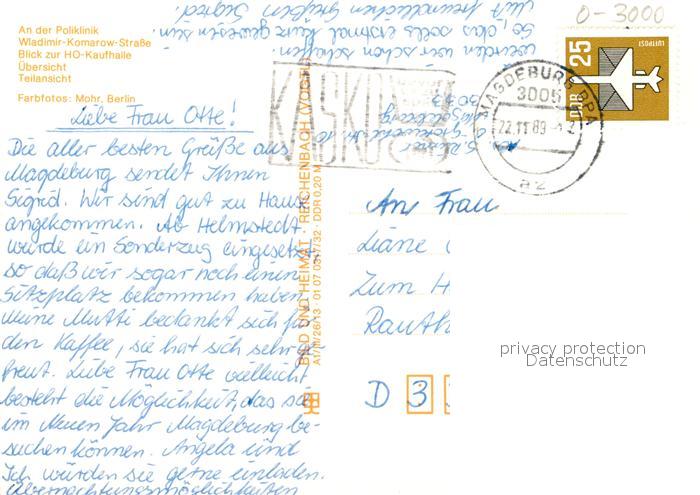 An der Poliklinik
Wladimir-Komarow-Straße
Blick zur HO-Kaufhalle
Übersicht
Teilansicht
Farbfotos: Mohr, Berlin
Liebe Frau Otte!
Die aller besten Grüße aus
Magdeburg sendet Ihnen
Sigrid. Wir sind gut zu Haus
angekommen. Ab Helmstedt
wurde ein Sonderzug eingesetzt
so daß wir sogar noch einen
Sitzplatz bekommen haben.
Meine Mutti bedankt sich für
den Kaffee, sie hat sich sehr ge-
freut. Liebe Frau Otte vielleicht
besteht die Möglichkeit, das sie
im Neuen Jahr Magdeburg be-
suchen können. Angela und
Ich würden sie gerne einladen.
Übernachtungsmöglichkeiten
werden wir schon schaffen.
So, das solls erstmal kurz gewesen sein.
Mit freundlichen Grüßen Sigrid.
BILD UND HEIMAT · REICHENBACH (VOGTL)
A1/III/26/13 · 01 07 03 17/32 · DDR 0,20 M
Magdeburg
O-3000
DDR 25
LUFTPOST
MAGDEBURG BPA
3005
22.11.89
az
KASKO
An Frau
Liane
Zum H
Rauth
D 3
privacy protection
Datenschutz